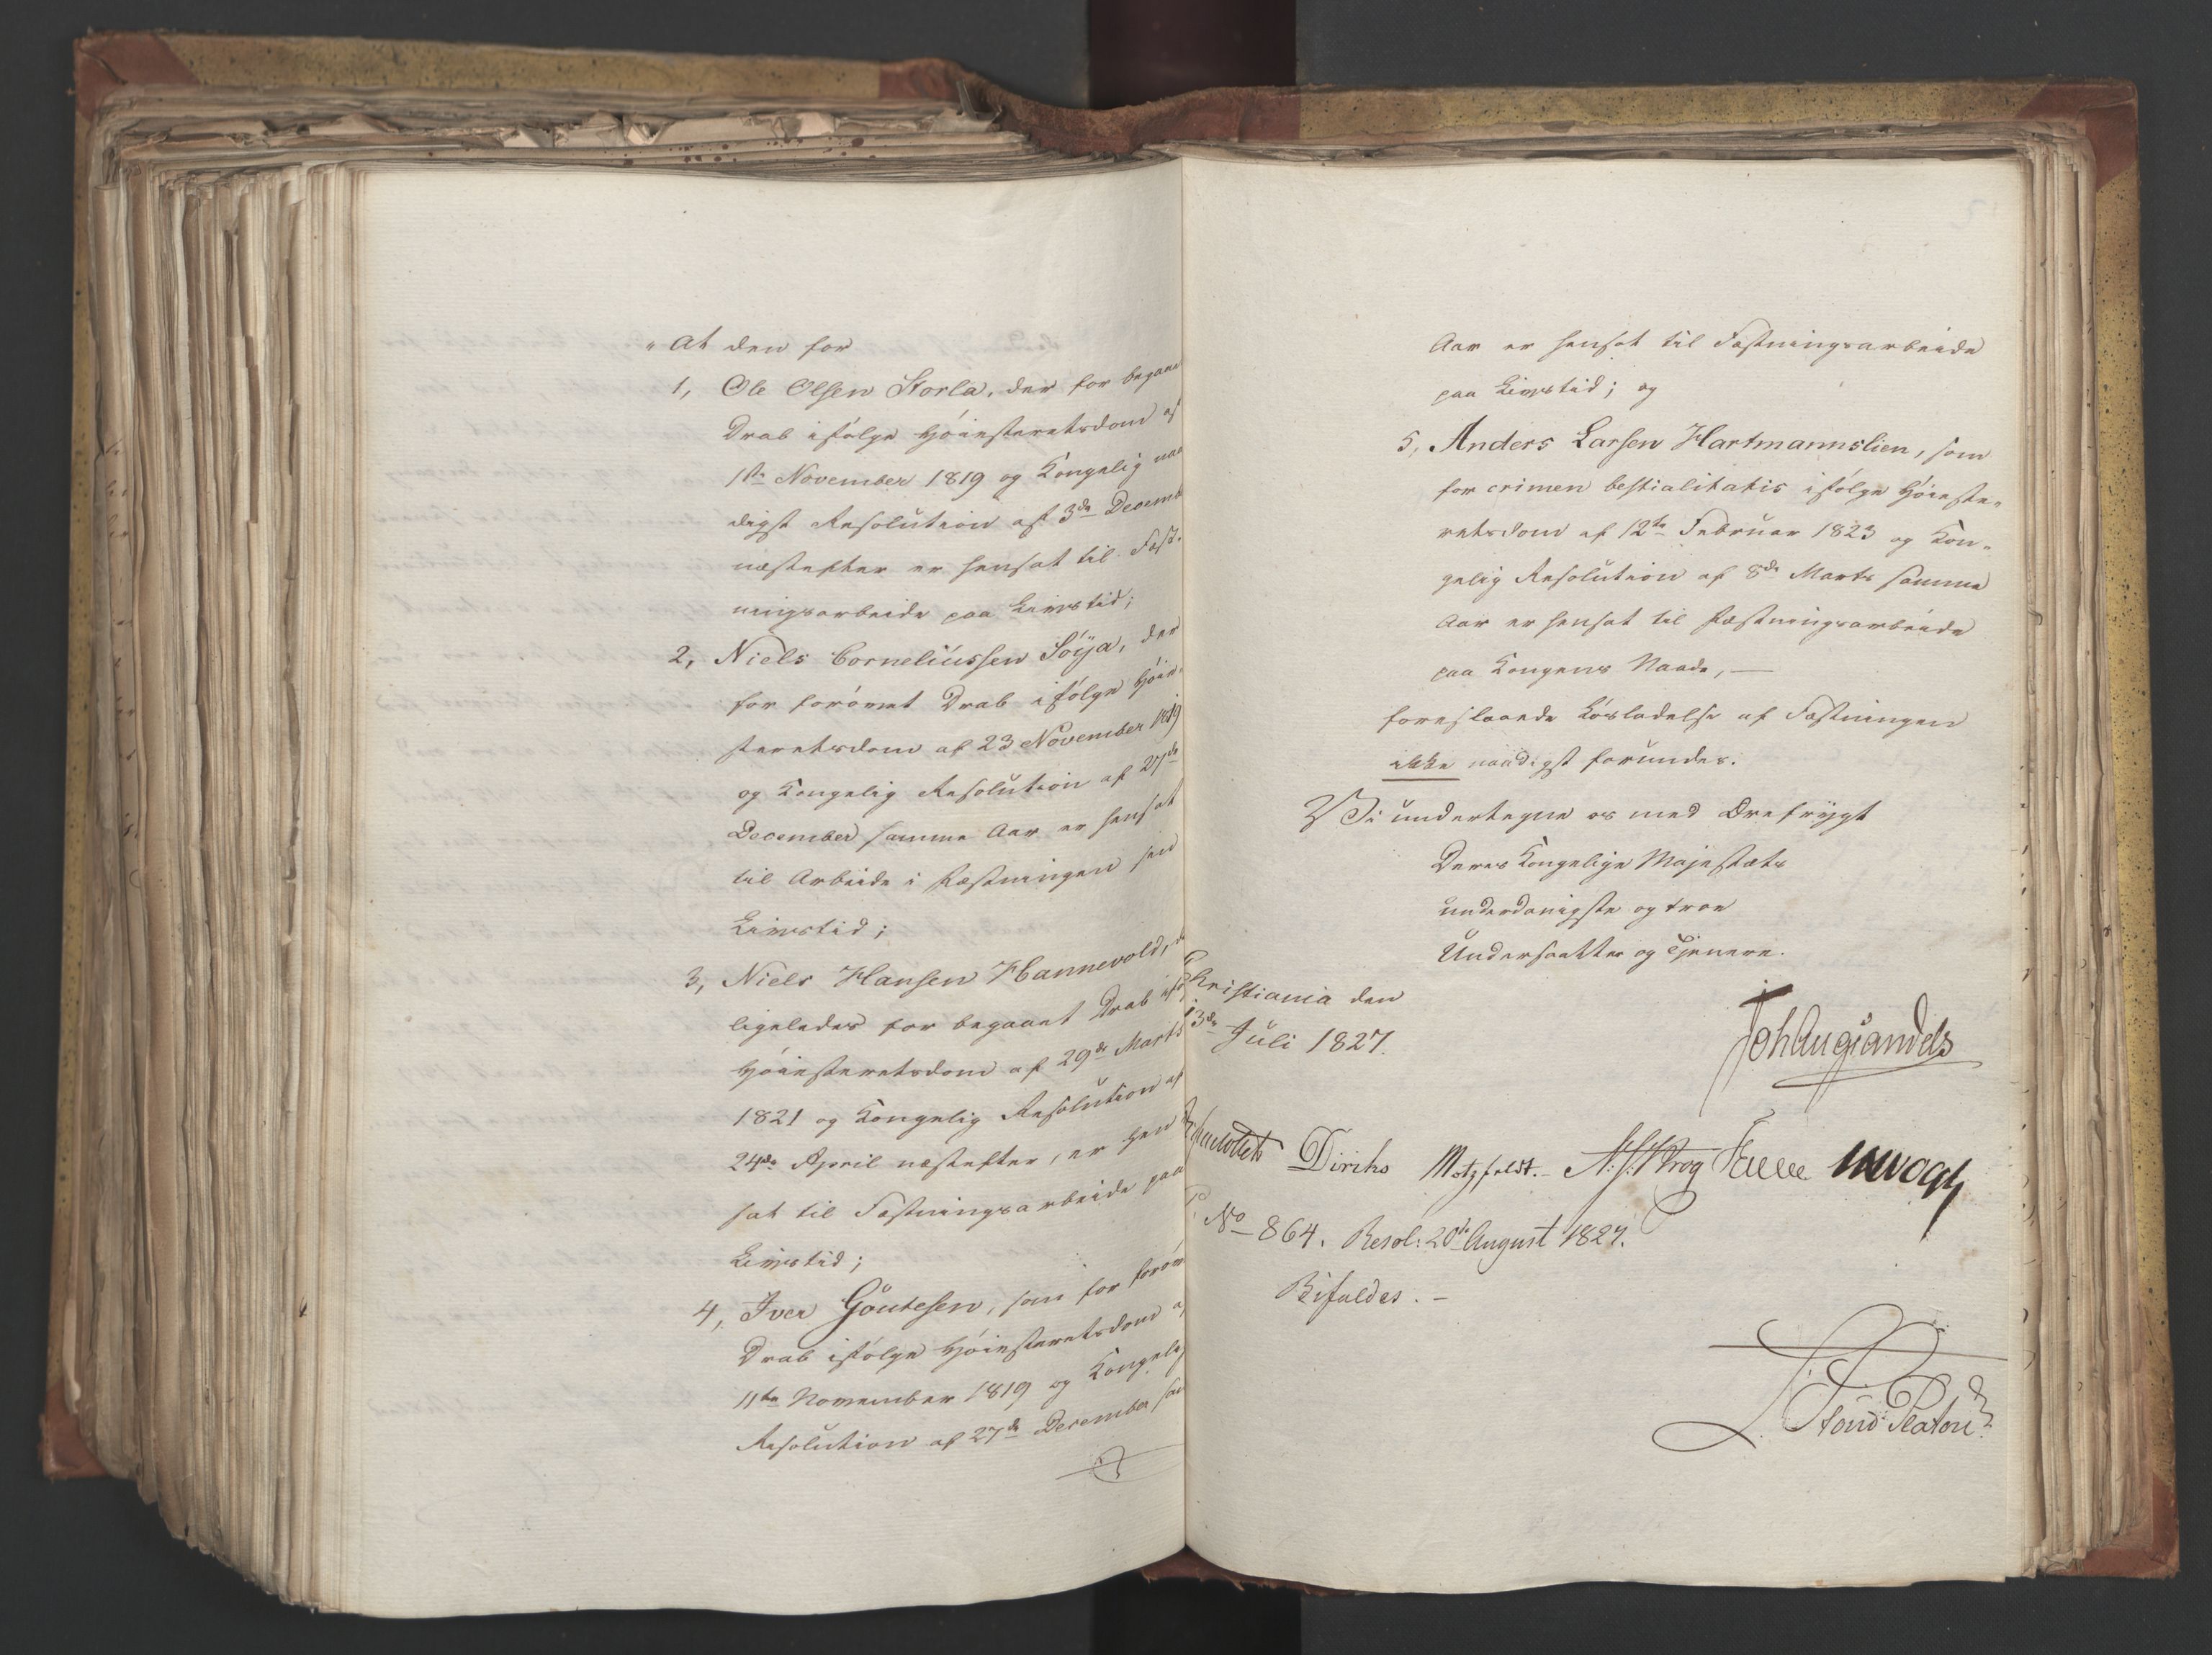 "At den for
1, Ole Olsen Storla, der for begaaet
Drab ifølge Høiesteretsdom af
1ste November 1819 og Kongelig naa
digst Resolution af 3de Decemb
næstefter er hensat til Fæst-
ningsarbeide paa Livstid;
2, Niels Corneliussen Söÿa, der
for forøvet Drab ifølge Høie-
steretsdom af 23 November 1819
og Kongelig Resolution af 27de
December samme Aar er hensat
til Arbeide i Fæstningen sin
Livstid;
3, Niels Hansen Hannevold,
ligeledes for begaaet Drab ifø
Høiesteretsdom af 29de Marts
1821 og Kongelig Resolution af
24de April næstefter, er hen
sat til Fæstningsarbeide paa
Livstid;
4, Iver Göutesen, som for forøv
Drab ifølge Høiesteretsdom a
11te November 1819 og Kongelig
Resolution af 27de December sam
Aar er hensat til Fæstningsarbeide
paa Livstid; og
5, Anders Larsen Hartmannslien, som
for crimen bestialitatis ifølge Høieste-
retsdom af 12te Februar 1823 og Kon-
gelig Resolution af 8de Marts samme
Aar er hensat til Fæstningsarbeide
paa Kongens Naade, —
foreslaaede Løsladelse af Fæstningen
ikke naadigst forundes.
Vi undertegne os med Ærefrygt
Deres Kongelige Majestæts
underdanigste og troe
Undersaatter og Tjenere.
Christiania den
13de Juli 1827.
Joh Aug Sandels
Diriks Motzfeldt. Krog Fasting Vogt
No 864. Resol: 20de August 1827.
Bifaldes. –